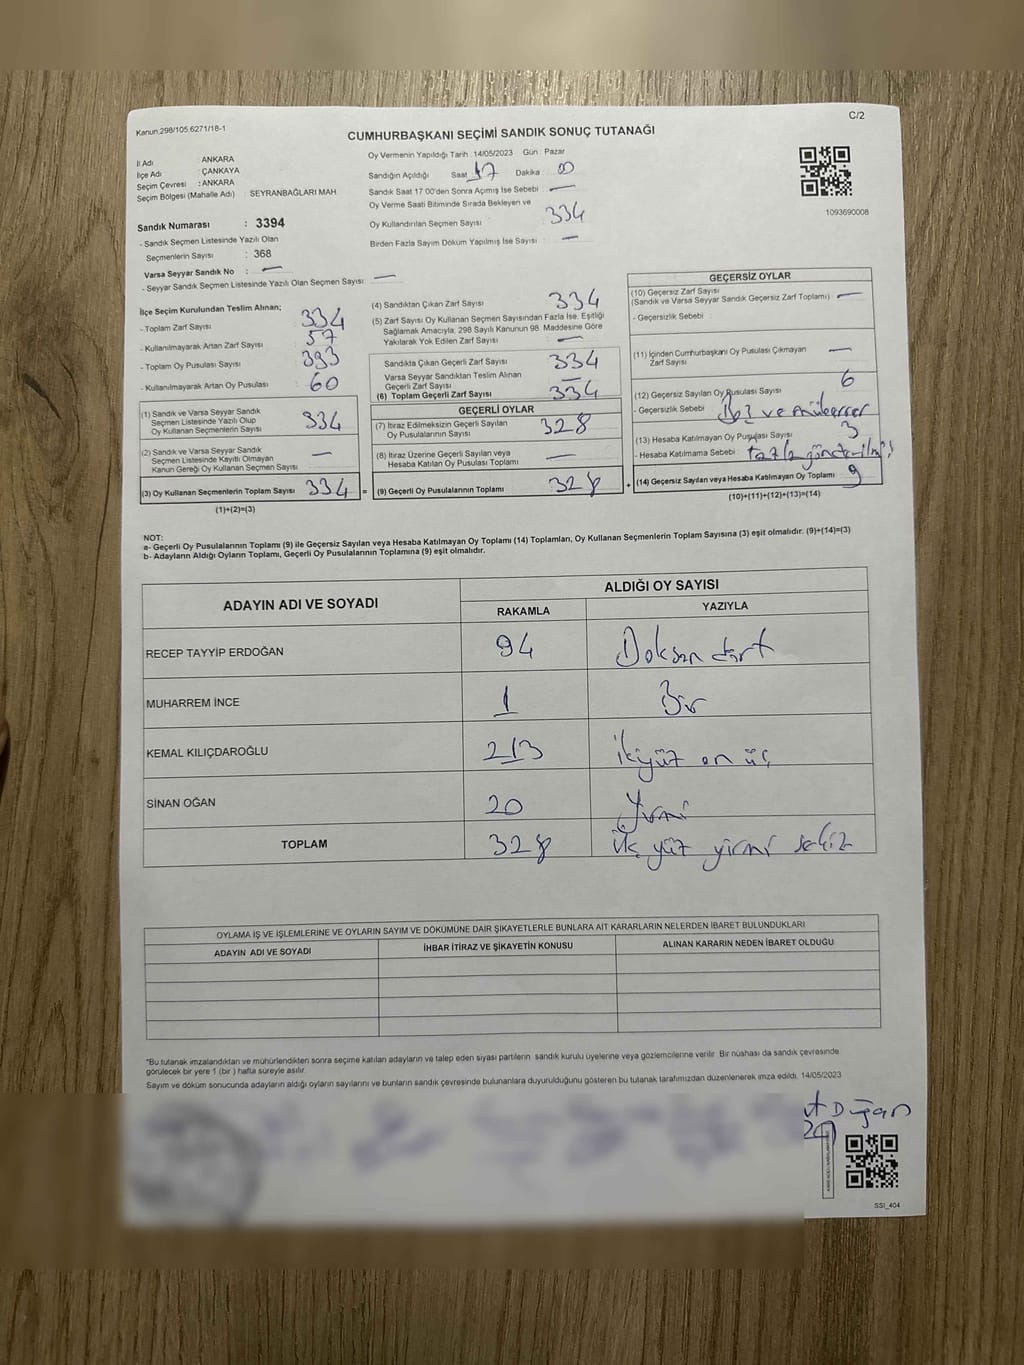 Kanun.298/105.6271/18-1
C/2
CUMHURBAŞKANI SEÇİMİ SANDIK SONUÇ TUTANAĞI
İl Adı : ANKARA
İlçe Adı : ÇANKAYA
Seçim Çevresi : ANKARA
Seçim Bölgesi (Mahalle Adı) : SEYRANBAĞLARI MAH
Sandık Numarası : 3394
- Sandık Seçmen Listesinde Yazılı Olan
Seçmenlerin Sayısı : 368
Varsa Seyyar Sandık No : —
- Seyyar Sandık Listesinde Yazılı Olan Seçmen Sayısı : —
Oy Vermenin Yapıldığı Tarih : 14/05/2023 Gün : Pazar
Sandığın Açıldığı Saat 17 Dakika 00
Sandık Saat 17.00'den Sonra Açımış İse Sebebi : —
Oy Verme Saati Bitiminde Sırada Bekleyen ve
Oy Kullandırılan Seçmen Sayısı : 334
Birden Fazla Sayım Döküm Yapılmış İse Sayısı : —
1093690008
İlçe Seçim Kurulundan Teslim Alınan;
- Toplam Zarf Sayısı : 334
- Kullanılmayarak Artan Zarf Sayısı : 57
- Toplam Oy Pusulası Sayısı : 393
- Kullanılmayarak Artan Oy Pusulası : 60
(1) Sandık ve Varsa Seyyar Sandık
Seçmen Listesinde Yazılı Olup
Oy Kullanan Seçmenlerin Sayısı : 334
(2) Sandık ve Varsa Seyyar Sandık
Seçmen Listesinde Kayıtlı Olmayan
Kanun Gereği Oy Kullanan Seçmen Sayısı : —
(3) Oy Kullanan Seçmenlerin Toplam Sayısı : 334 =
(1)+(2)=(3)
(4) Sandıktan Çıkan Zarf Sayısı : 334
(5) Zarf Sayısı Oy Kullanan Seçmen Sayısından Fazla İse, Eşitliği
Sağlamak Amacıyla, 298 Sayılı Kanunun 98. Maddesine Göre
Yakılarak Yok Edilen Zarf Sayısı : —
Sandıkta Çıkan Geçerli Zarf Sayısı : 334
Varsa Seyyar Sandıktan Teslim Alınan
Geçerli Zarf Sayısı : —
(6) Toplam Geçerli Zarf Sayısı : 334
GEÇERLİ OYLAR
(7) İtiraz Edilmeksizin Geçerli Sayılan
Oy Pusulalarının Sayısı : 328
(8) İtiraz Üzerine Geçerli Sayılan veya
Hesaba Katılan Oy Pusulası Toplamı : —
(9) Geçerli Oy Pusulalarının Toplamı : 328 +
GEÇERSİZ OYLAR
(10) Geçersiz Zarf Sayısı
(Sandık ve Varsa Seyyar Sandık Geçersiz Zarf Toplamı) : —
- Geçersizlik Sebebi :
(11) İçinden Cumhurbaşkanı Oy Pusulası Çıkmayan
Zarf Sayısı : —
(12) Geçersiz Sayılan Oy Pusulası Sayısı : 6
- Geçersizlik Sebebi : Boş ve mükerrer
(13) Hesaba Katılmayan Oy Pusulası Sayısı : 3
- Hesaba Katılmama Sebebi : fazla gönderilmiş
(14) Geçersiz Sayılan veya Hesaba Katılmayan Oy Toplamı : 9
(10)+(11)+(12)+(13)=(14)
NOT:
a- Geçerli Oy Pusulalarının Toplamı (9) ile Geçersiz Sayılan veya Hesaba Katılmayan Oy Toplamı (14) Toplamları, Oy Kullanan Seçmenlerin Toplam Sayısına (3) eşit olmalıdır. (9)+(14)=(3)
b- Adayların Aldığı Oyların Toplamı, Geçerli Oy Pusulalarının Toplamına (9) eşit olmalıdır.
ADAYIN ADI VE SOYADI
ALDIĞI OY SAYISI
RAKAMLA YAZIYLA
RECEP TAYYİP ERDOĞAN 94 Doksan dört
MUHARREM İNCE 1 Bir
KEMAL KILIÇDAROĞLU 213 İkiyüz on üç
SİNAN OĞAN 20 Yirmi
TOPLAM 328 üç yüz yirmi sekiz
OYLAMA İŞ VE İŞLEMLERİNE VE OYLARIN SAYIM VE DÖKÜMÜNE DAİR ŞİKAYETLERLE BUNLARA AİT KARARLARIN NELERDEN İBARET BULUNDUKLARI
ADAYIN ADI VE SOYADI İHBAR İTİRAZ VE ŞİKAYETİN KONUSU ALINAN KARARIN NEDEN İBARET OLDUĞU
"Bu tutanak imzalandıktan ve mühürlendikten sonra seçime katılan adayların ve talep eden siyasi partilerin sandık kurulu üyelerine veya gözlemcilerine verilir. Bir nüshası da sandık çevresinde
görülecek bir yere 1 (bir) hafta süreyle asılır.
Sayım ve döküm sonucunda adayların aldığı oyların sayılarını ve bunların sandık çevresinde bulunanlara duyurulduğunu gösteren bu tutanak tarafımızdan düzenlenerek imza edildi. 14/05/2023
SSI_404